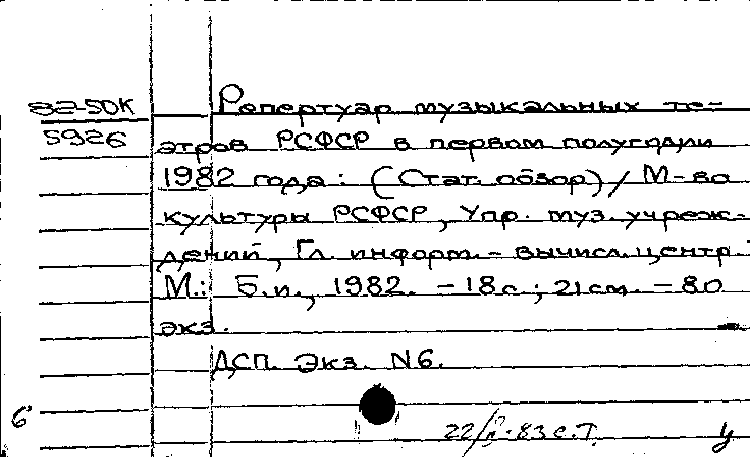 82-50К
5926
Репертуар музыкальных те-
атров РСФСР в первом полугодии
1982 года: (Стат. обзор) / М-во
культуры РСФСР, Упр. муз. учреж-
дений, Гл. информ.-вычисл. центр.-
М.: Б.и., 1982. - 18 с.; 21 см. - 80
экз.
ДСП. Экз. N6.
6
22/II-83 с.Т.
У